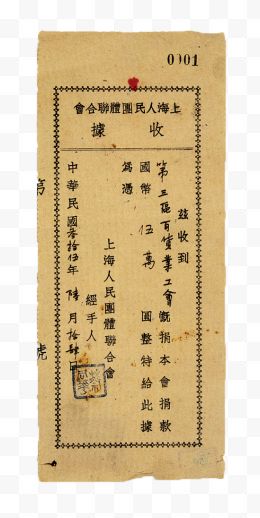 0001
上海人民團體聯合會
收據
茲收到
第三區百貨業工會慨捐本會捐款
國幣伍萬圓整特給此據
為憑
上海人民團體聯合會
經手人
中華民國叁拾伍年陸月拾肆日
第 號